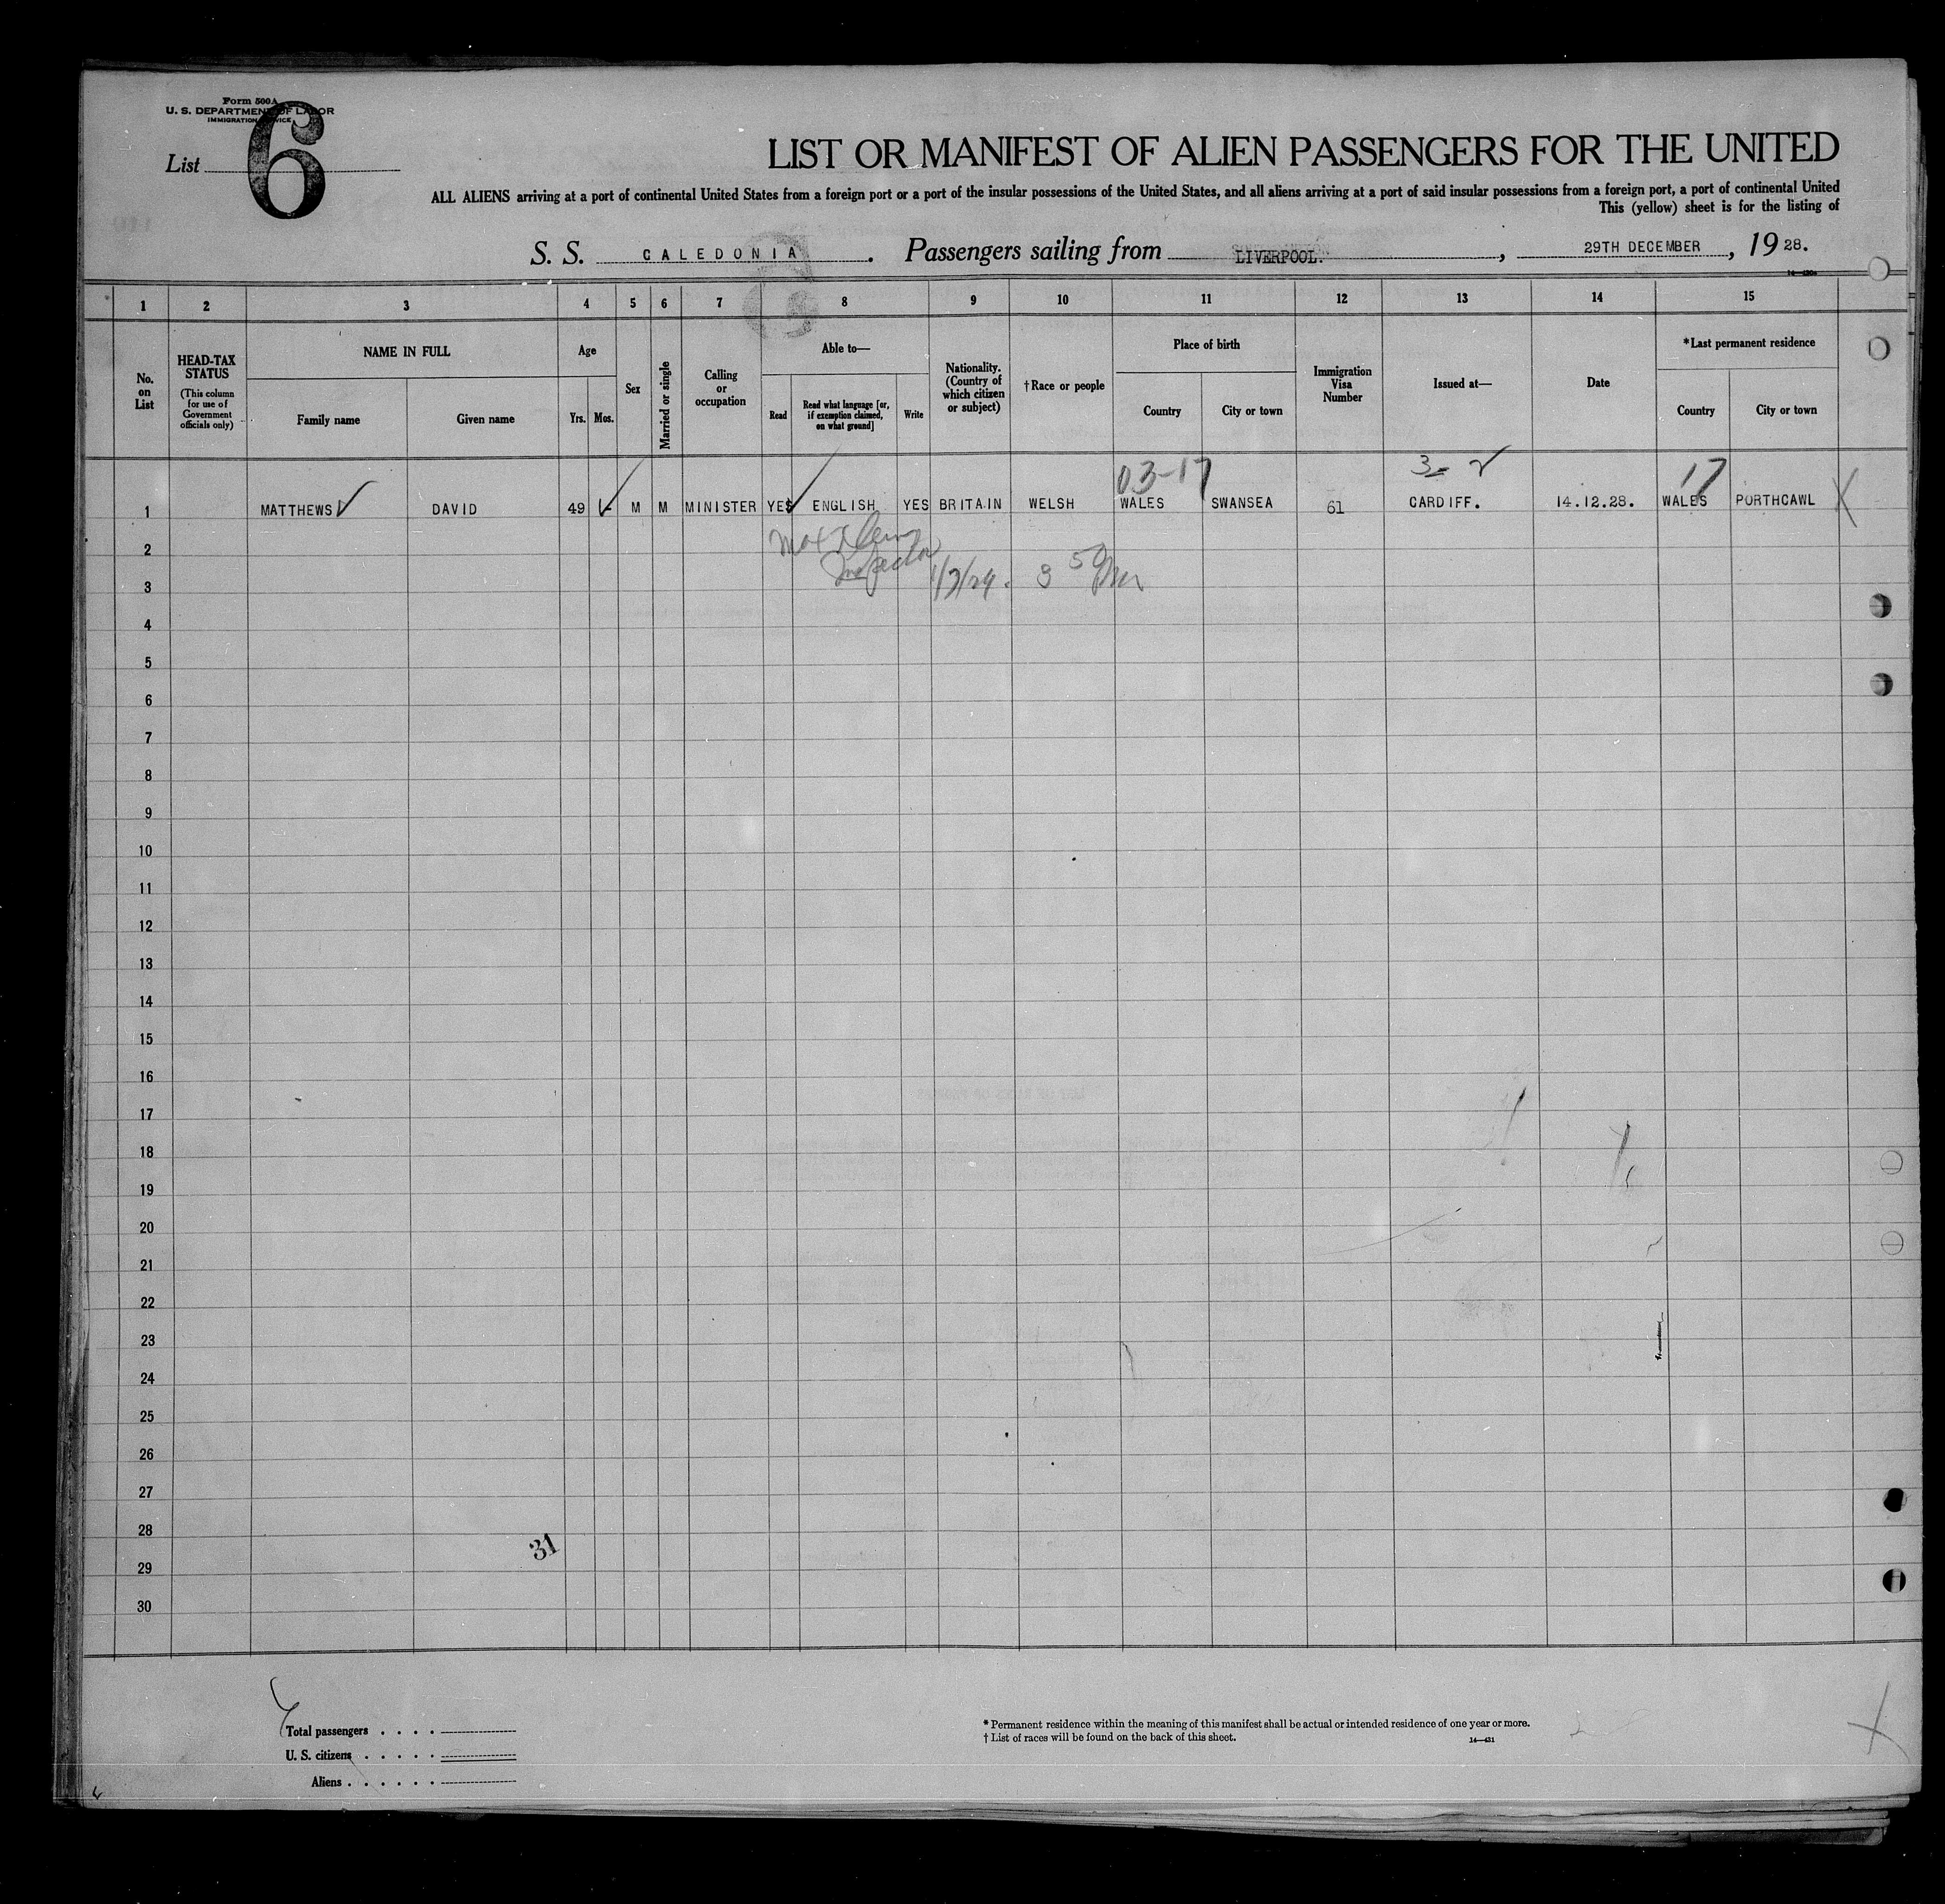 Form 500A
U. S. DEPARTMENT OF LABOR
IMMIGRATION SERVICE
List 6
LIST OR MANIFEST OF ALIEN PASSENGERS FOR THE UNITED
ALL ALIENS arriving at a port of continental United States from a foreign port or a port of the insular possessions of the United States, and all aliens arriving at a port of said insular possessions from a foreign port, a port of continental United
This (yellow) sheet is for the listing of
S. S. CALEDONIA. Passengers sailing from LIVERPOOL., 29TH DECEMBER, 1928.
1 2 3 4 5 6 7 8 9 10 11 12 13 14 15
No. on List
HEAD-TAX STATUS
(This column for use of Government officials only)
NAME IN FULL
Family name Given name
Age
Yrs. Mos.
Sex
Married or single
Calling or occupation
Able to—
Read
Read what language [or, if exemption claimed, on what ground]
Write
Nationality. (Country of which citizen or subject)
†Race or people
Place of birth
Country City or town
Immigration Visa Number
Issued at—
Date
*Last permanent residence
Country City or town
03-17 17
1 MATTHEWS DAVID 49 M M MINISTER YES ENGLISH YES BRITAIN WELSH WALES SWANSEA 61 CARDIFF. 14.12.28. WALES PORTHCAWL
2
Inspector
3
4
5
6
7
8
9
10
11
12
13
14
15
16
17
18
19
20
21
22
23
24
25
26
27
28
31
29
30
Total passengers . . . .
U. S. citizens . . . . .
Aliens . . . . . .
* Permanent residence within the meaning of this manifest shall be actual or intended residence of one year or more.
† List of races will be found on the back of this sheet.
14—431